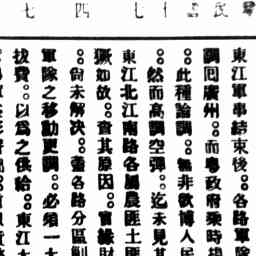 七 四
東江軍事結束後。各路軍隊
調囘廣州。而粵政府乘時提
。此種論調。無非欲博人民
。然而高調空彈。迄未見其
東江北江南路各屬農匪土匪
獗如故。查其原因。實緣財
。尚未解決。蓋各路分區剿
軍隊之移動更調。必須一大
拔費。以爲之供給。東江大